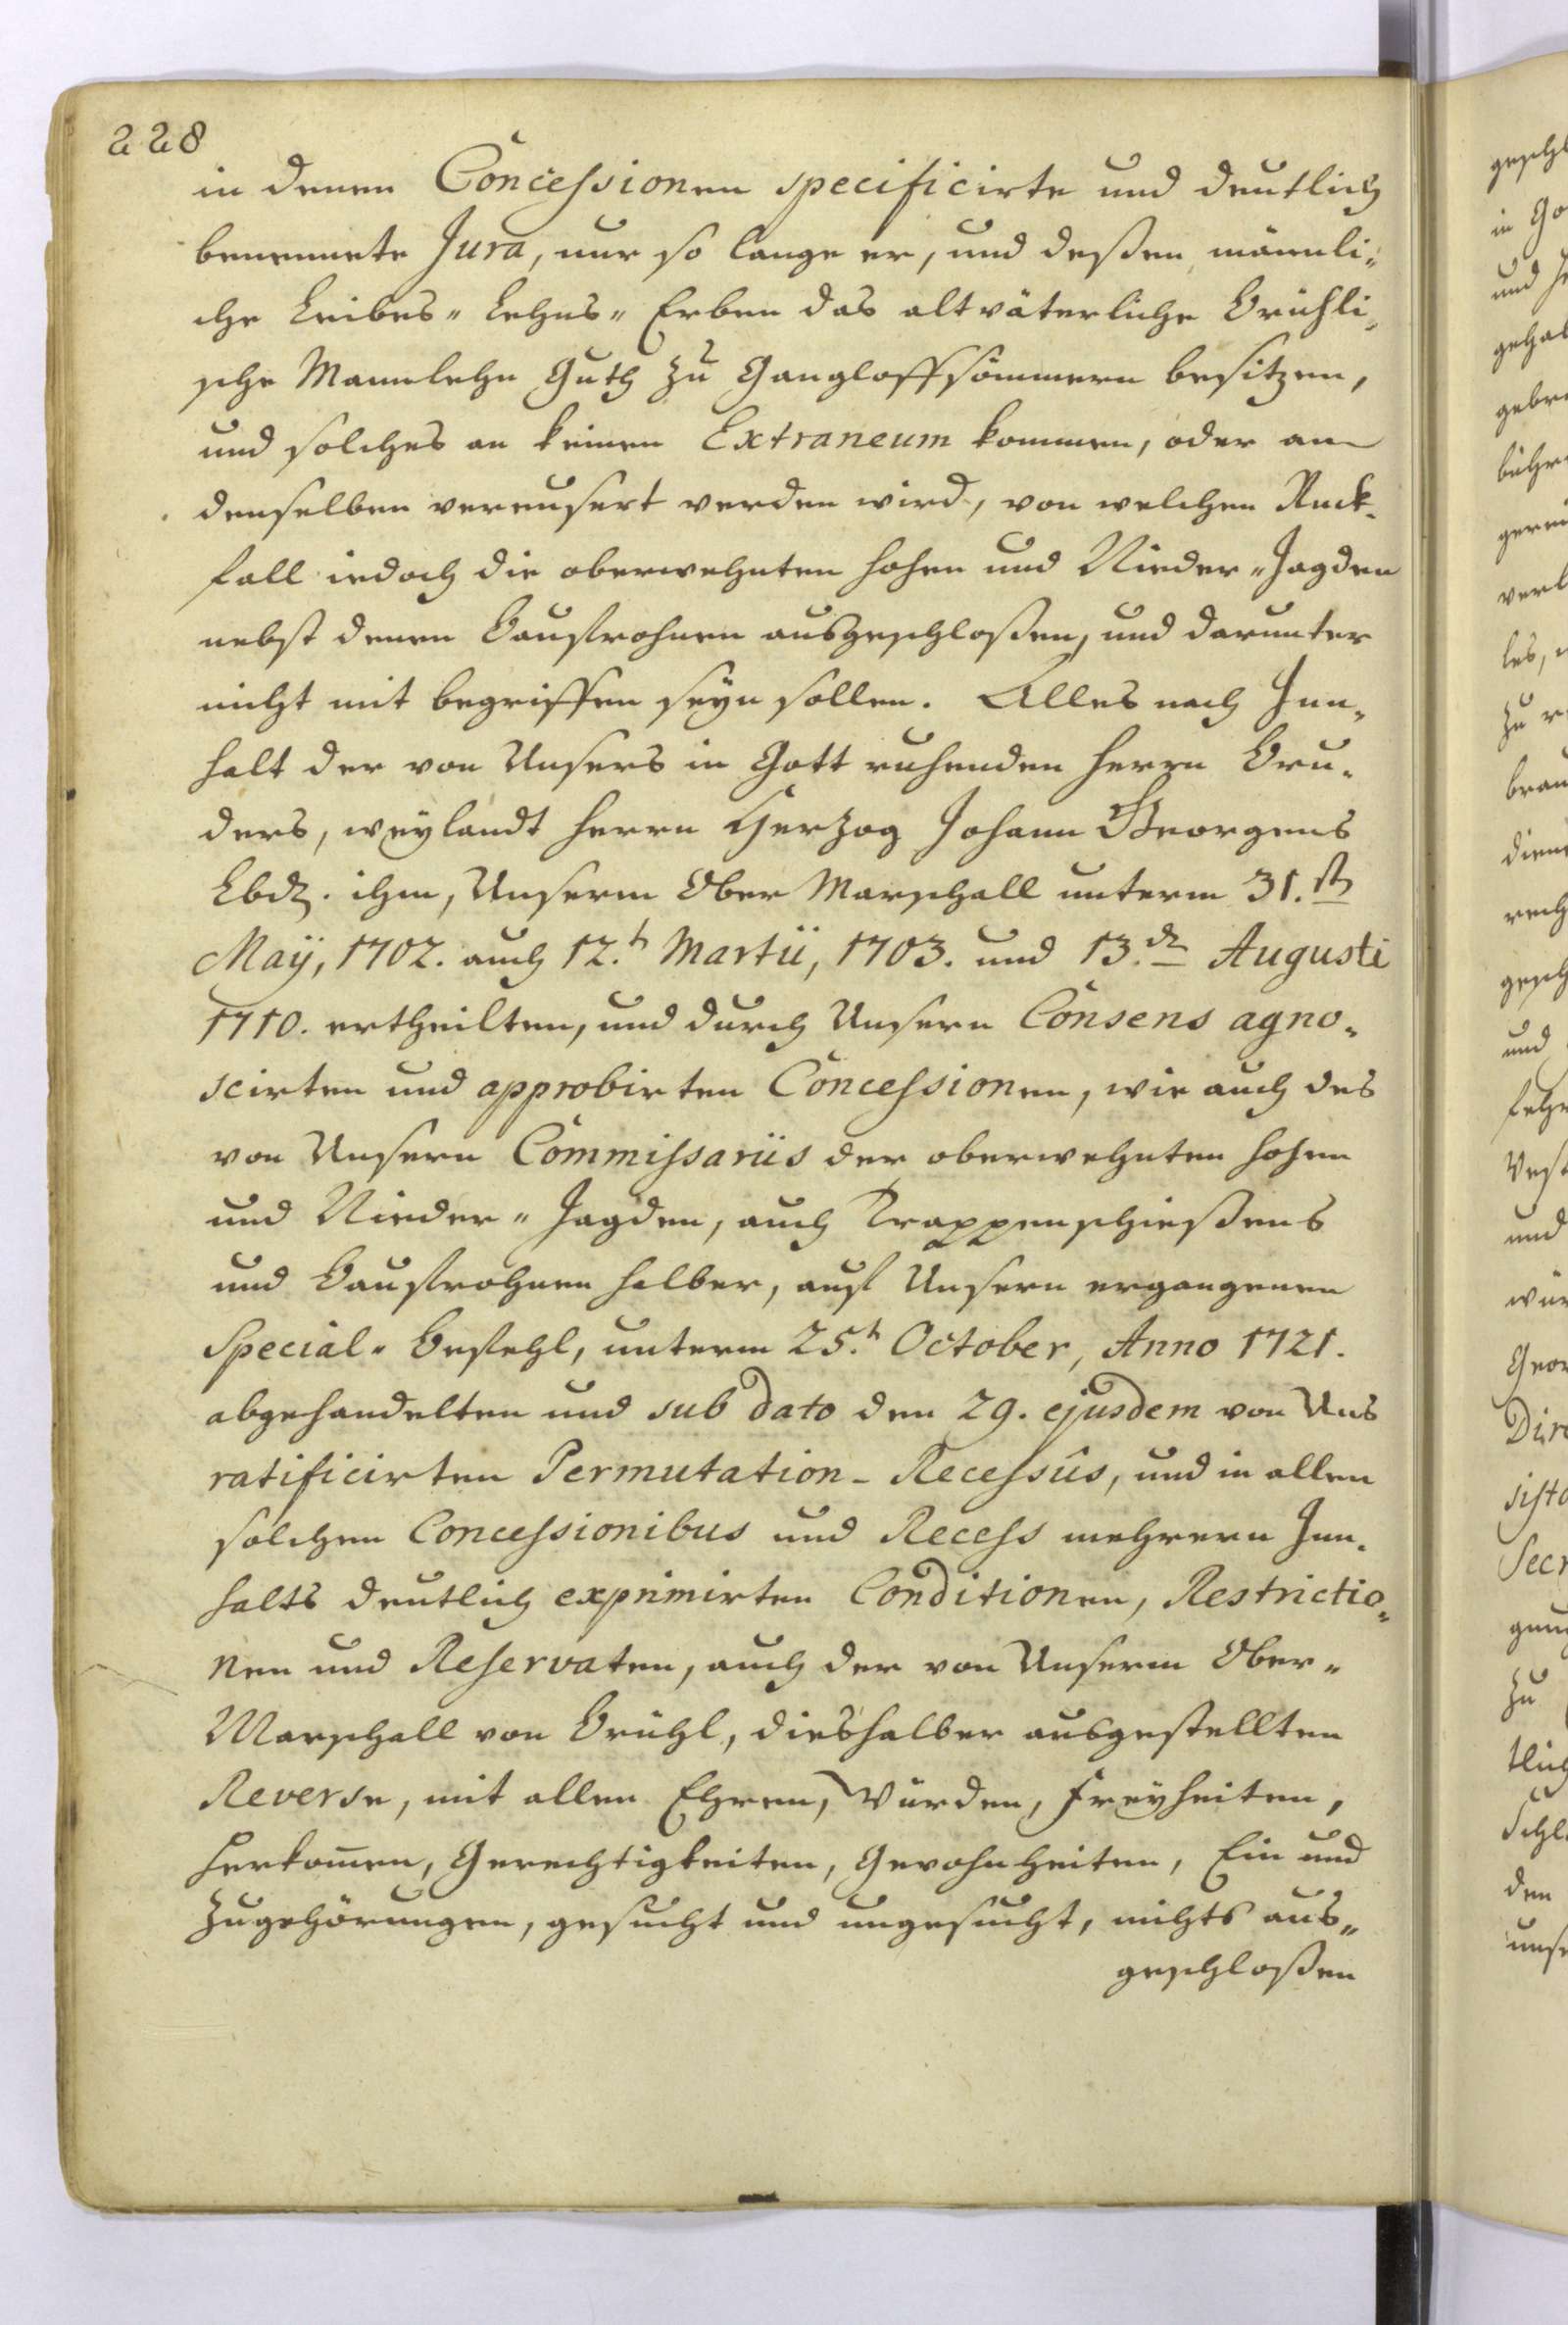 228
in denen Concessionen specificirte und deutlich
benennete Jura, nur so lange er, und deßen männli-
che Leibes- Lehns- Erben das altväterliche Brühli-
sche Mannlehn Guth zu Gangloffsömmern besitzen,
und solches an keinen Extraneum kommen, oder an
denselben vereusert werden wird, von welchen Ruck-
fall iedoch die oberwehnten hohen und Nieder-Jagden
nebst denen Baufrohnen ausgeschloßen, und darunter
nicht mit begriffen seyn sollen. Alles nach Inn-
halt der von Unsers in Gott ruhenden Herrn Bru-
ders, weylandt Herrn Herzog Johann Georgens
Lbd. ihm, Unserm Ober Marschall unterm 31.st
Maÿ, 1702. auch 12.t Martii, 1703. und 13.d Augusti
1710. ertheilten, und durch Unsern Consens agno-
scirten und approbirten Concessionen, wie auch des
von Unsern Commissariis der oberwehnten hohen
und Nieder- Jagden, auch Trappenschießens
und Baufrohnen halber, auf Unsern ergangenen
Special- Befehl, unterm 25.t October, Anno 1721.
abgehandelten und sub dato den 29. ejusdem von Uns
ratificirten Permutation- Recessûs, und in allen
solchen Concessionibus und Recess mehrern Inn-
halts deutlich exprimirten Conditionen, Restrictio-
nen und Reservaten, auch der von Unserm Ober-
Marschall von Brühl, dieshalber ausgestellten
Reverse, mit allen Ehren, Würden, Freyheiten,
Herkom̄en, Gerechtigkeiten, Gewohnheiten, Ein und
Zugehörungen, gesucht und ungesucht, nichts aus-
geschloßen